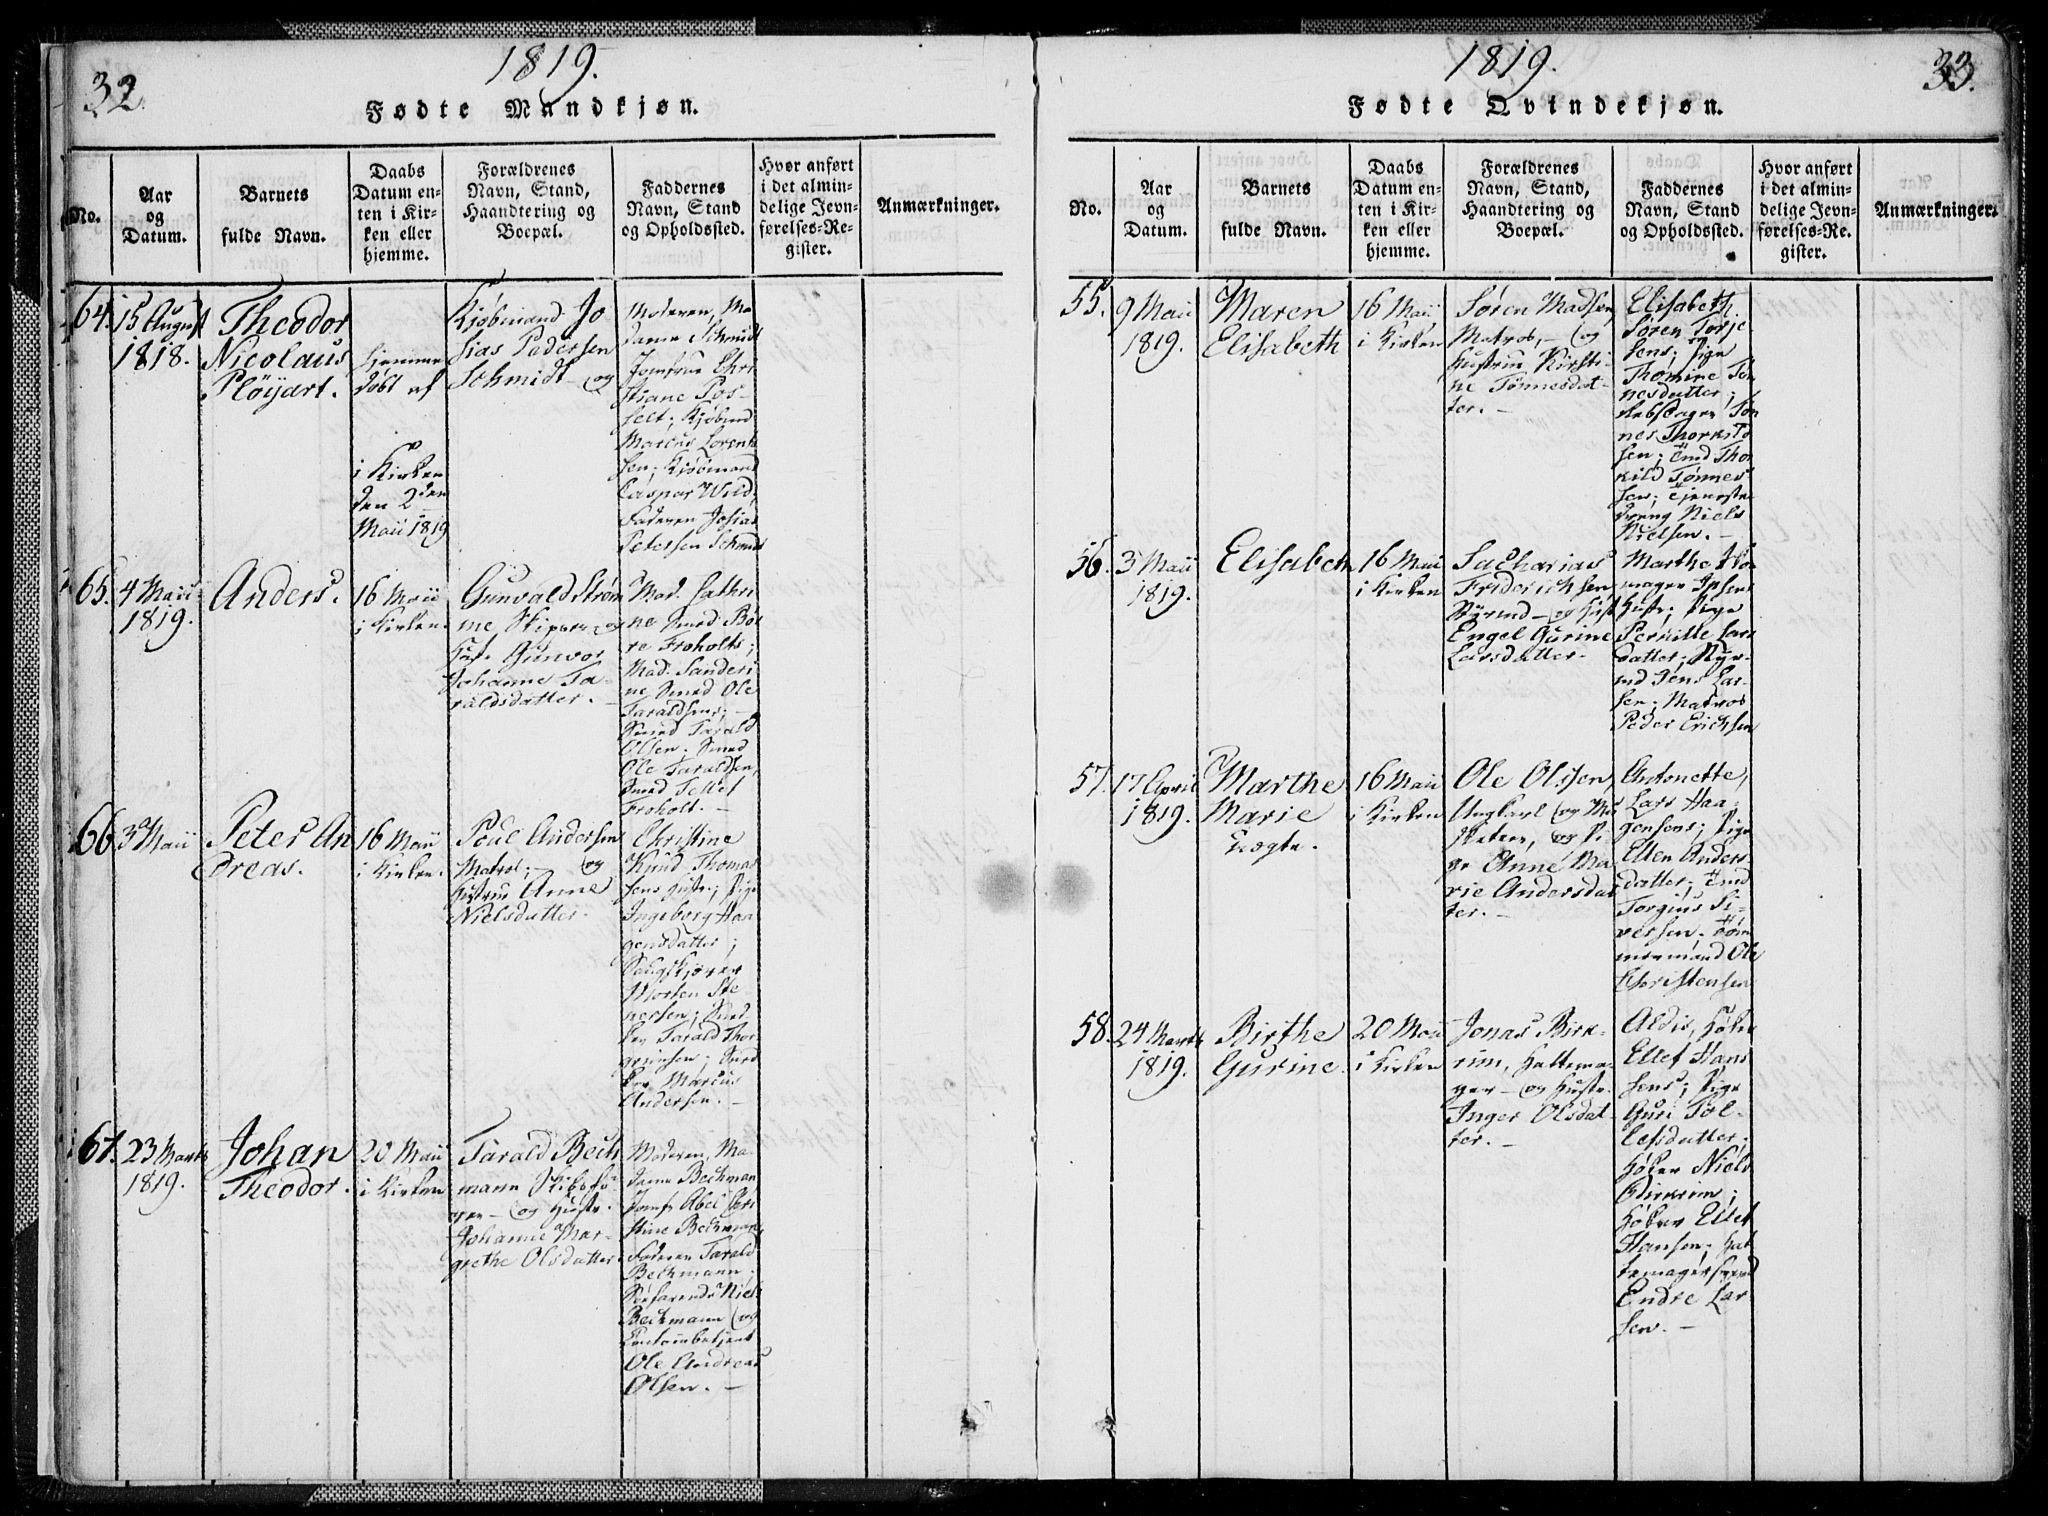 32.
1819.
Fødte Mandkjøn.
No.
Aar
og
Datum.
Barnets
fulde Navn.
Daabs
Datum en-
ten i Kir-
ken eller
hjemme.
Forældrenes
Navn, Stand,
Haandtering og
Boepæl.
Faddernes
Navn, Stand
og Opholdssted.
Hvor anført
i det almin-
delige Jevn-
førelses-Re-
gister.
Anmærkninger.
64.
15 August
1818.
Theodor
Nicolaus
Pløyart.
hjemme
døbt af
i Kirken
den 2den
Maii 1819
Kjøbmand Jo
sias Pedersen
Schmidt og
Moderen, Ma
dame Schmidt
Jomfrue Chri
stiane Pos-
selt; Kjøbmd
Marcus Lorent
sen; Kjøbmand
Caspar Wild;
Faderen Josias
Petersen Schmidt
65.
4 Maii
1819.
Anders.
16 Maii
i Kirken.
Gunvald Strøm
me Skipper og
Hust. Gunvor
Johanne Ta-
raldsdatter.
Mad. Cathri
ne Smed Bør
re Froholts;
Mad. Sanderi
ne Smed Ole
Taraldsens;
Smed Tarald
Olsen. Smed
Ole Taraldsen,
Smed Tellef
Froholt.
66.
3 Maii
Peter An
dreas.
16 Maii
i Kirken.
Poul Andersen
Matros; og
Hustrue Anne
Nielsdatter.
Christine
Knud Thomas
sens Hustr.; Pige
Ingeborg Haa
gensdatter;
Morten Ste-
nersen;
Tarald Thor
grimsen;
Marcus
Andersen.
67.
23 Marts
1819.
Johan
Theodor.
20 Maii
i Kirken
Tarald Beck
mann Skibsfø-
rer og Hustr.
Johanne Mar-
grethe Olsdatter.
Moderen, Ma
dame Beckman
Jomfr Abel Chri
stine Beckmann
Faderen Tarald
Beckmann;
Søefarende Niels
Beckmann og
Contoirbetjent
Ole Andreas
Olsen.
1819.
33.
Fødte Qvindekjøn.
No.
Aar
og
Datum.
Barnets
fulde Navn.
Daabs
Datum en-
ten i Kir-
ken eller
hjemme.
Forældrenes
Navn, Stand,
Haandtering og
Boepæl.
Faddernes
Navn, Stand
og Opholdssted.
Hvor anført
i det almin-
delige Jevn-
førelses-Re-
gister.
Anmærkninger.
55.
9 Maii
1819.
Maren
Elisabeth
16 Maii
i Kirken
Søren Madsen,
Matros, og
Hustrue Kirsti
ne Tønnesdat-
ter.
Elisabeth
Søren Torje
sens; Pige
Thomine Tøn
nesdatter;
Tøn
nes Thorkild
sen; Tho
rkild Tønnes
sen; Tjeneste
dreng Niels
Nielsen.
56.
3 Maii
1819.
Elisabeth
16 Maii
i Kirken
Sacharias
Friderichsen
Styrmd og Hust
Engel Gurine
Larsdatter.
Marthe
Hustr; Pige
Pernille Lars
datter; Styr-
md Jens Lar-
sen; Matros
Peder Erichsen
57.
17 April
1819.
Marthe
Marie
Uægte.
16 Maii
i Kirken
Ole Olssen,
Ungkarl og Mu
sketeer, og Pi-
ge Anne Ma
rie Andersdat
ter.
Antonette,
Lars Haa-
gensens; Pige
Ellen Anders
datter;
Torgius Si-
versen. Tøm
mermand Ole
Christensen
58.
24 Marts
1819.
Birthe
Gurine.
20 Maii
i Kirken
Jonas Birk-
rim, Hattema-
ger og Hustr.
Inger Olsdat-
ter.
Aldis, Høker
Ellef Hans
sens; Pige
Guri Tol-
lefsdatter.
Høker Niels
Birkrim;
Høker Ellef
Hansen; Hat
temagersvend
Endre Lar
sen.